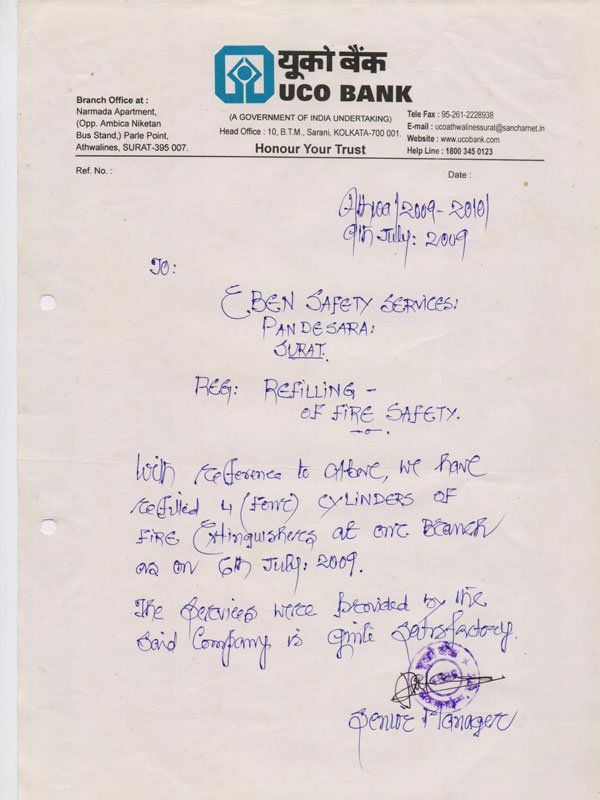 यूको बैंक
UCO BANK
(A GOVERNMENT OF INDIA UNDERTAKING)
Head Office : 10, B.T.M., Sarani, KOLKATA-700 001.
Honour Your Trust
Branch Office at :
Narmada Apartment,
(Opp. Ambica Niketan
Bus Stand,) Parle Point,
Athwalines, SURAT-395 007.
Tele Fax : 95-261-2228938
E-mail : ucoathwalinessurat@sancharnet.in
Website : www.ucobank.com
Help Line : 1800 345 0123
Ref. No. :
Date :
/2009-2010/
9th July: 2009
To:
EBEN SAFETY SERVICES:
PANDESARA:
SURAT.
REG: REFILLING -
OF FIRE SAFETY.
With reference to Above, we have
refilled 4 (four) CYLINDERS OF
FIRE Extinguishers at our Branch
as on 6th July: 2009.
The services were provided by the
said Company is quite satisfactory.
यूको बैंक
Senior Manager